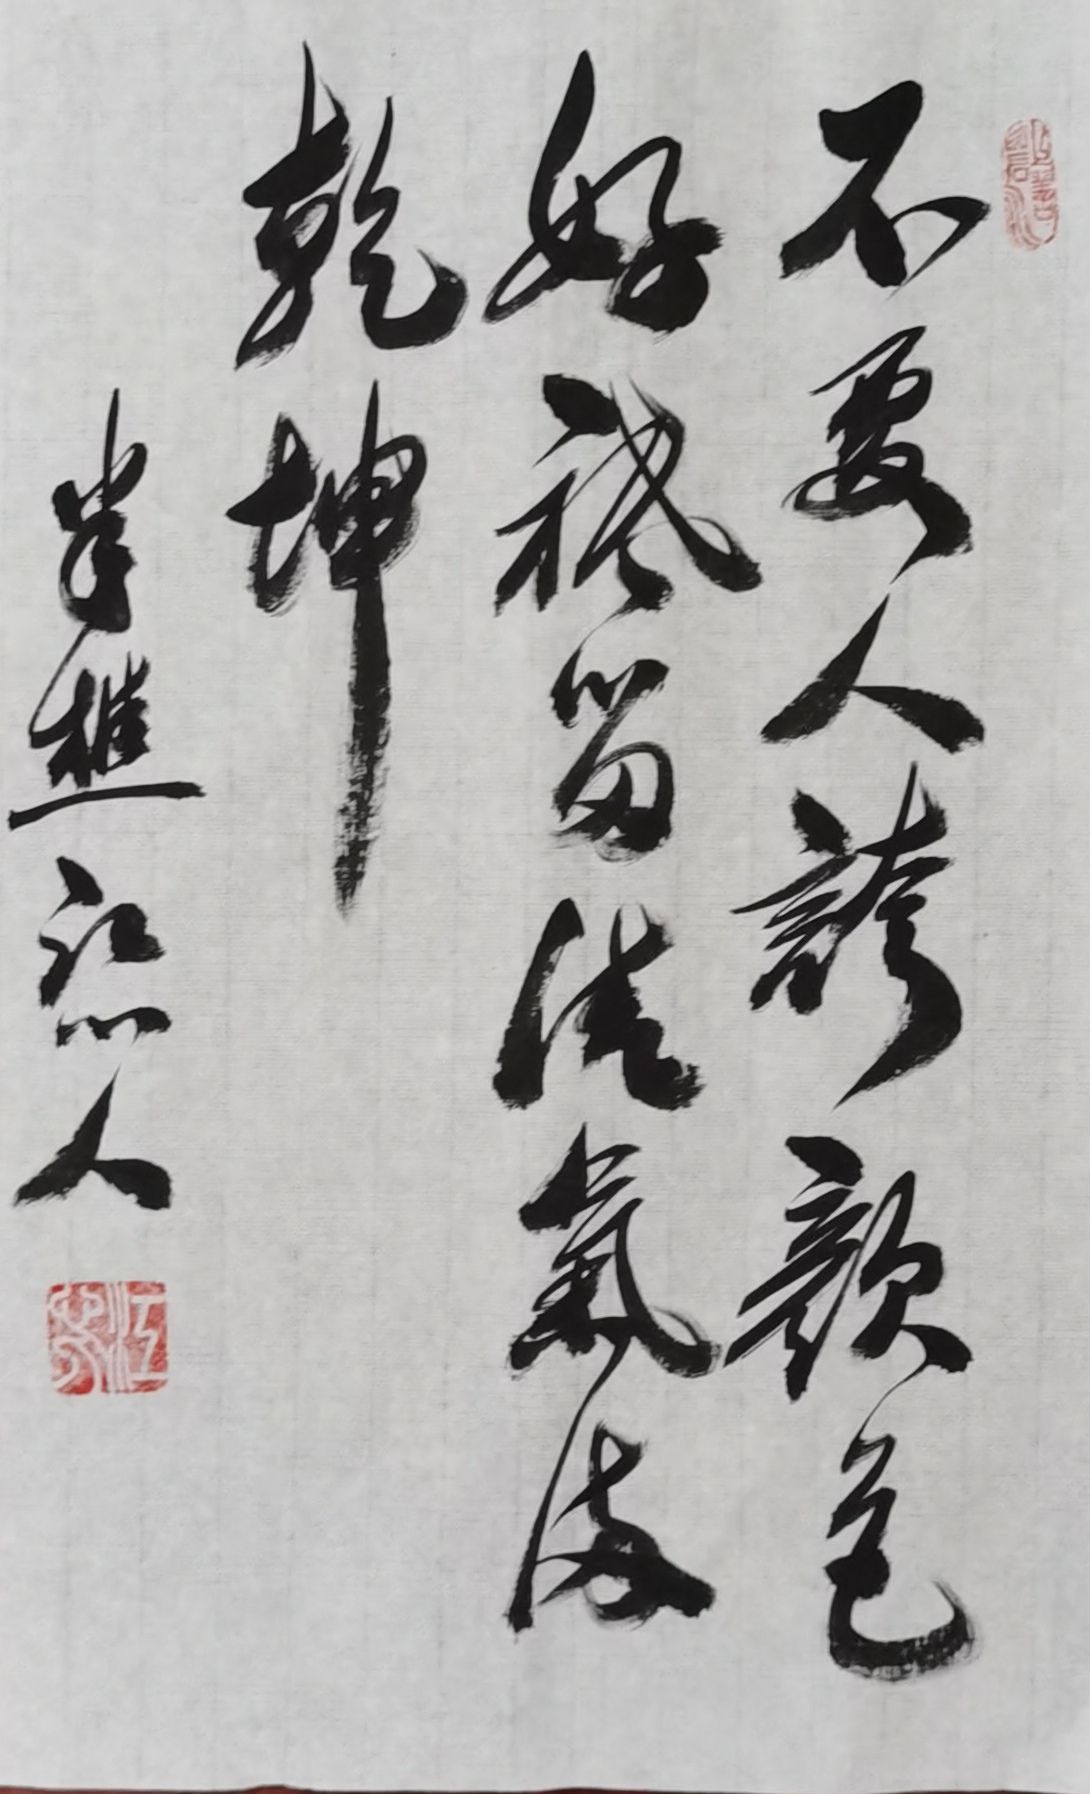 不要人誇顏色
好祇留清氣滿
乾坤
半樵江心人